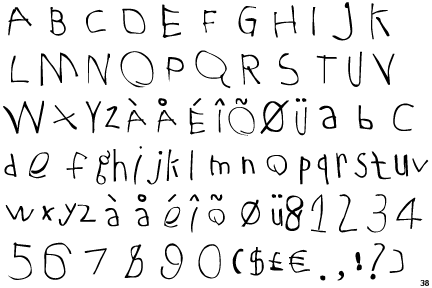 A B C D E F G H I J K
L M N O P Q R S T U V
W X Y Z À Å É Î Õ Ø Ü a b c
d e f g h i j k l m n o p q r s t u v
w x y z à å é î õ ø ü & 1 2 3 4
5 6 7 8 9 0 ( $ £ € . , ! ? )
38